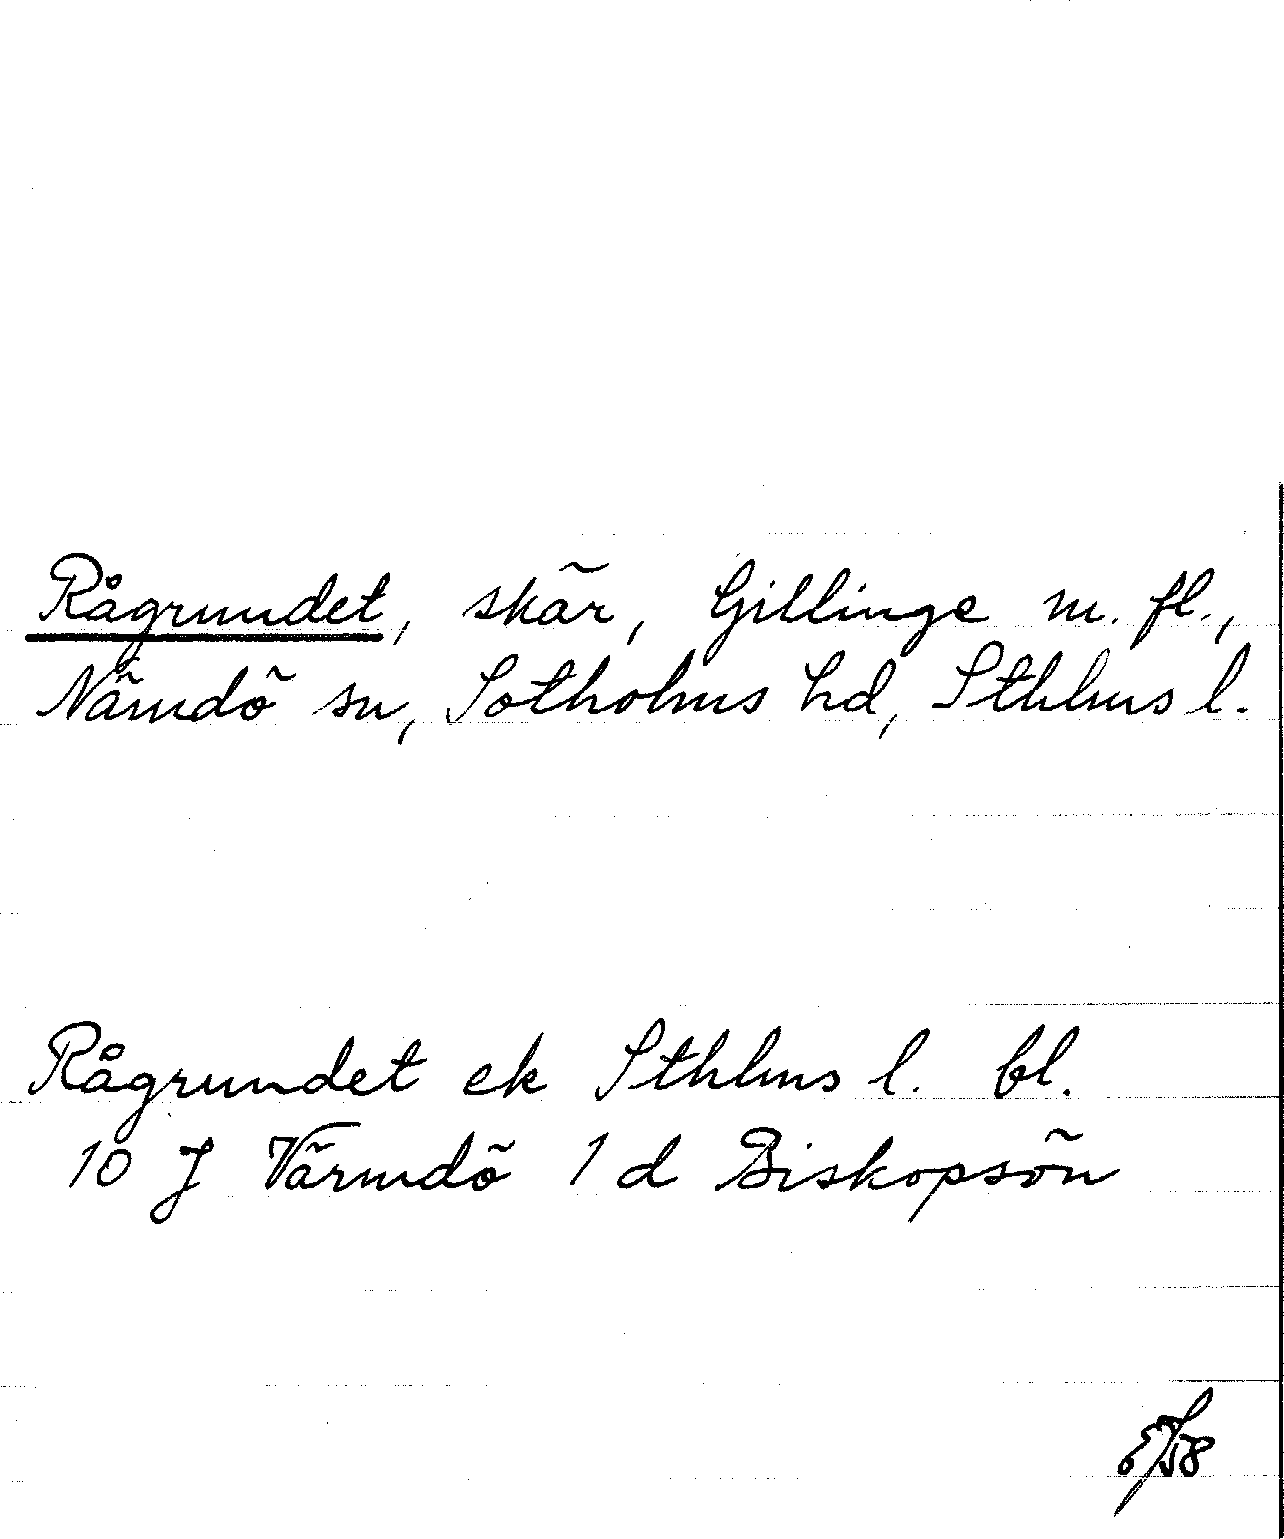 Rågrundet, skär, Gillinge m. fl.,
Nämdö sn, Sotholms hd, Sthlms l.
Rågrundet ek Sthlms l. bl.
10 J Värmdö 1 d Biskopsön